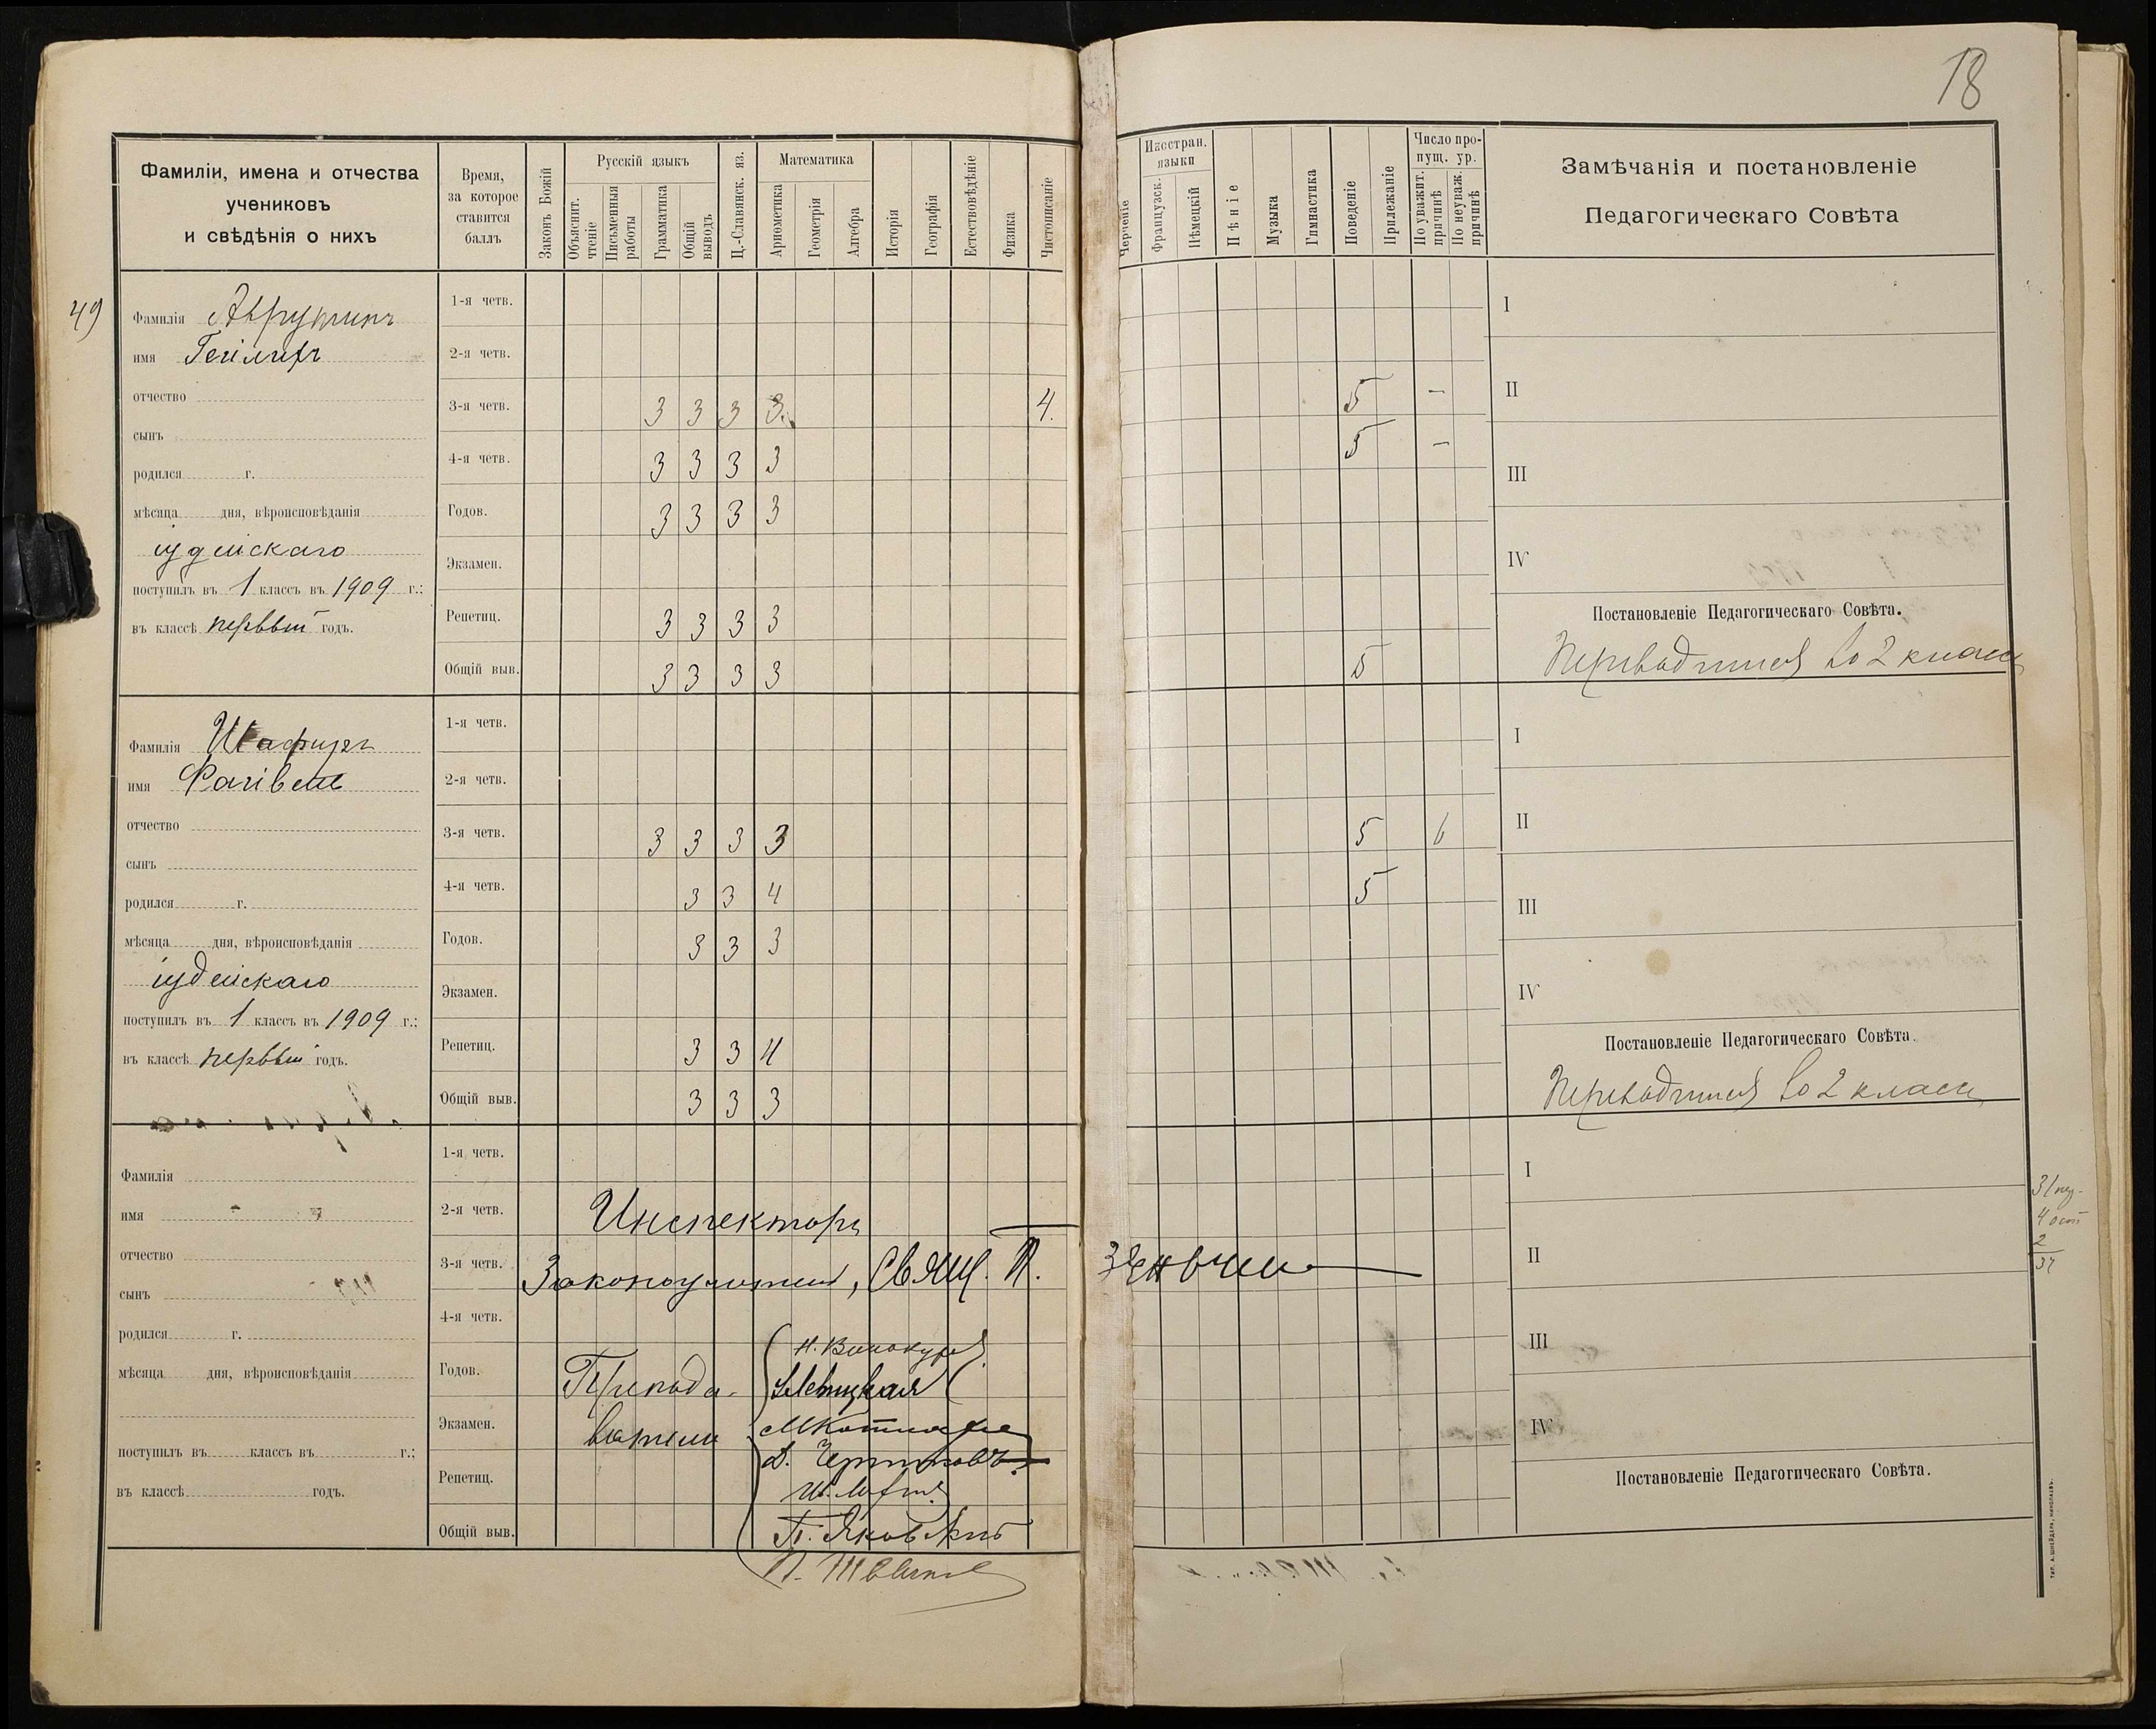 18
Фамиліи, имена и отчества
учениковъ
и свѣдѣнія о нихъ
Время,
за которое
ставится
баллъ
Законъ Божій
Русскій языкъ
Объяснит.
чтеніе
Письменныя
работы
Грамматика
Общій
выводъ
Ц.-Славянск. яз.
Математика
Арѳометика
Геометрія
Алгебра
Исторія
Географія
Естествовѣдѣніе
Физика
Чистописаніе
Черченіе
Иностран.
языки
Французск.
Нѣмецкій
Пѣніе
Музыка
Гимнастика
Поведеніе
Прилежаніе
Число про-
пущ. ур.
По уважит.
причинѣ
По неуваж.
причинѣ
Замѣчанія и постановленіе
Педагогическаго Совѣта
49
Фамилія Аврутинъ
имя
отчество
сынъ
родился г.
мѣсяца дня, вѣроисповѣданія
іудейскаго
поступилъ въ 1 классъ въ 1909 г.:
въ классѣ первый годъ.
1-я четв.
2-я четв.
3-я четв. 3 3 3 3. 4. 5 —
4-я четв. 3 3 3 3 5 —
Годов. 3 3 3 3
Экзамен.
Репетиц. 3 3 3 3
Общій выв. 3 3 3 3 5
I
II
III
IV
Постановленіе Педагогическаго Совѣта.
Переводится во 2 классъ
Фамилія Шафиръ
имя Файвель
отчество
сынъ
родился г.
мѣсяца дня, вѣроисповѣданія
іудейскаго
поступилъ въ 1 классъ въ 1909 г.:
въ классѣ первый годъ.
1-я четв.
2-я четв.
3-я четв. 3 3 3 3 5 6
4-я четв. 3 3 4 5
Годов. 3 3 3
Экзамен.
Репетиц. 3 3 4
Общій выв. 3 3 3
I
II
III
IV
Постановленіе Педагогическаго Совѣта.
Переводится во 2 классъ
Фамилія
имя
отчество
сынъ
родился г.
мѣсяца дня, вѣроисповѣданія
поступилъ въ классъ въ г.;
въ классѣ годъ.
1-я четв.
2-я четв.
3-я четв.
4-я четв.
Годов.
Экзамен.
Репетиц.
Общій выв.
Инспекторъ
Законоучитель, Свящ. П.
Препода-
ватели
Н. Винокуръ
Левицкая
Д.
П. Яковкинъ
I
II
III
IV
Постановленіе Педагогическаго Совѣта.
4 ост
2
37
ТИП. А. ШНЕЙДЕРЪ, НИКОЛАЕВЪ.